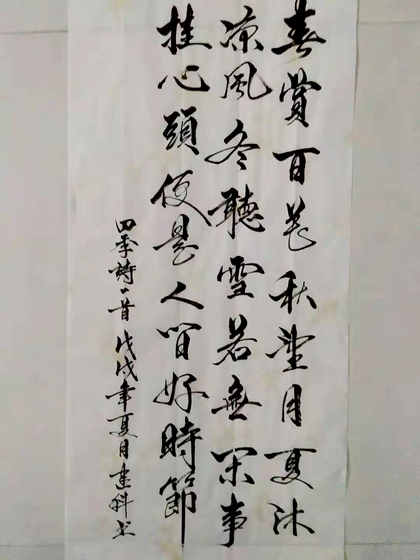 春赏百花秋望月夏沐
凉風冬聽雪若無闲事
挂心頭便是人间好時節
四季詩一首戊戌年夏月建科书